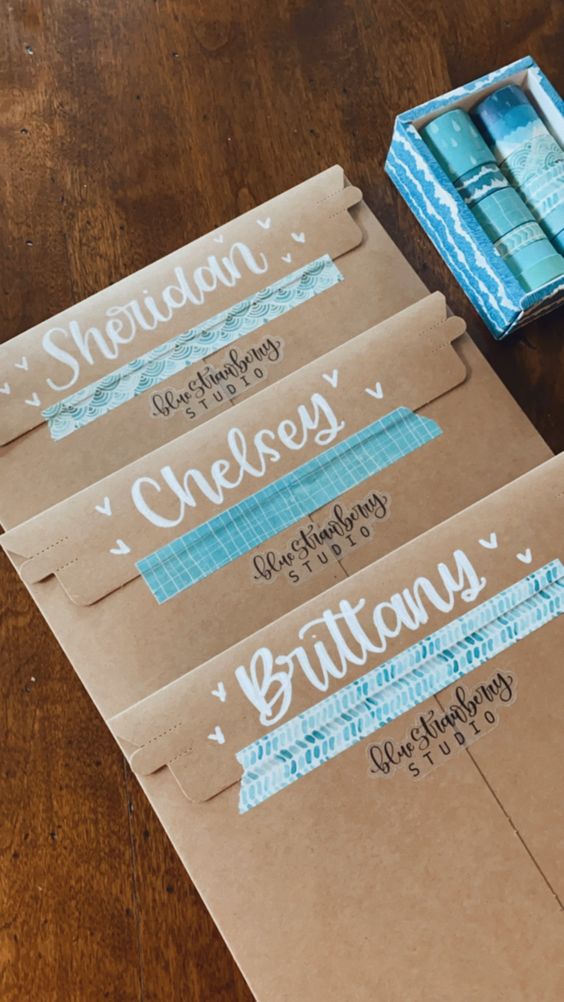 Sheridan
blue Strawberry
STUDIO
Chelsey
blue Strawberry
STUDIO
Brittany
blue Strawberry
STUDIO